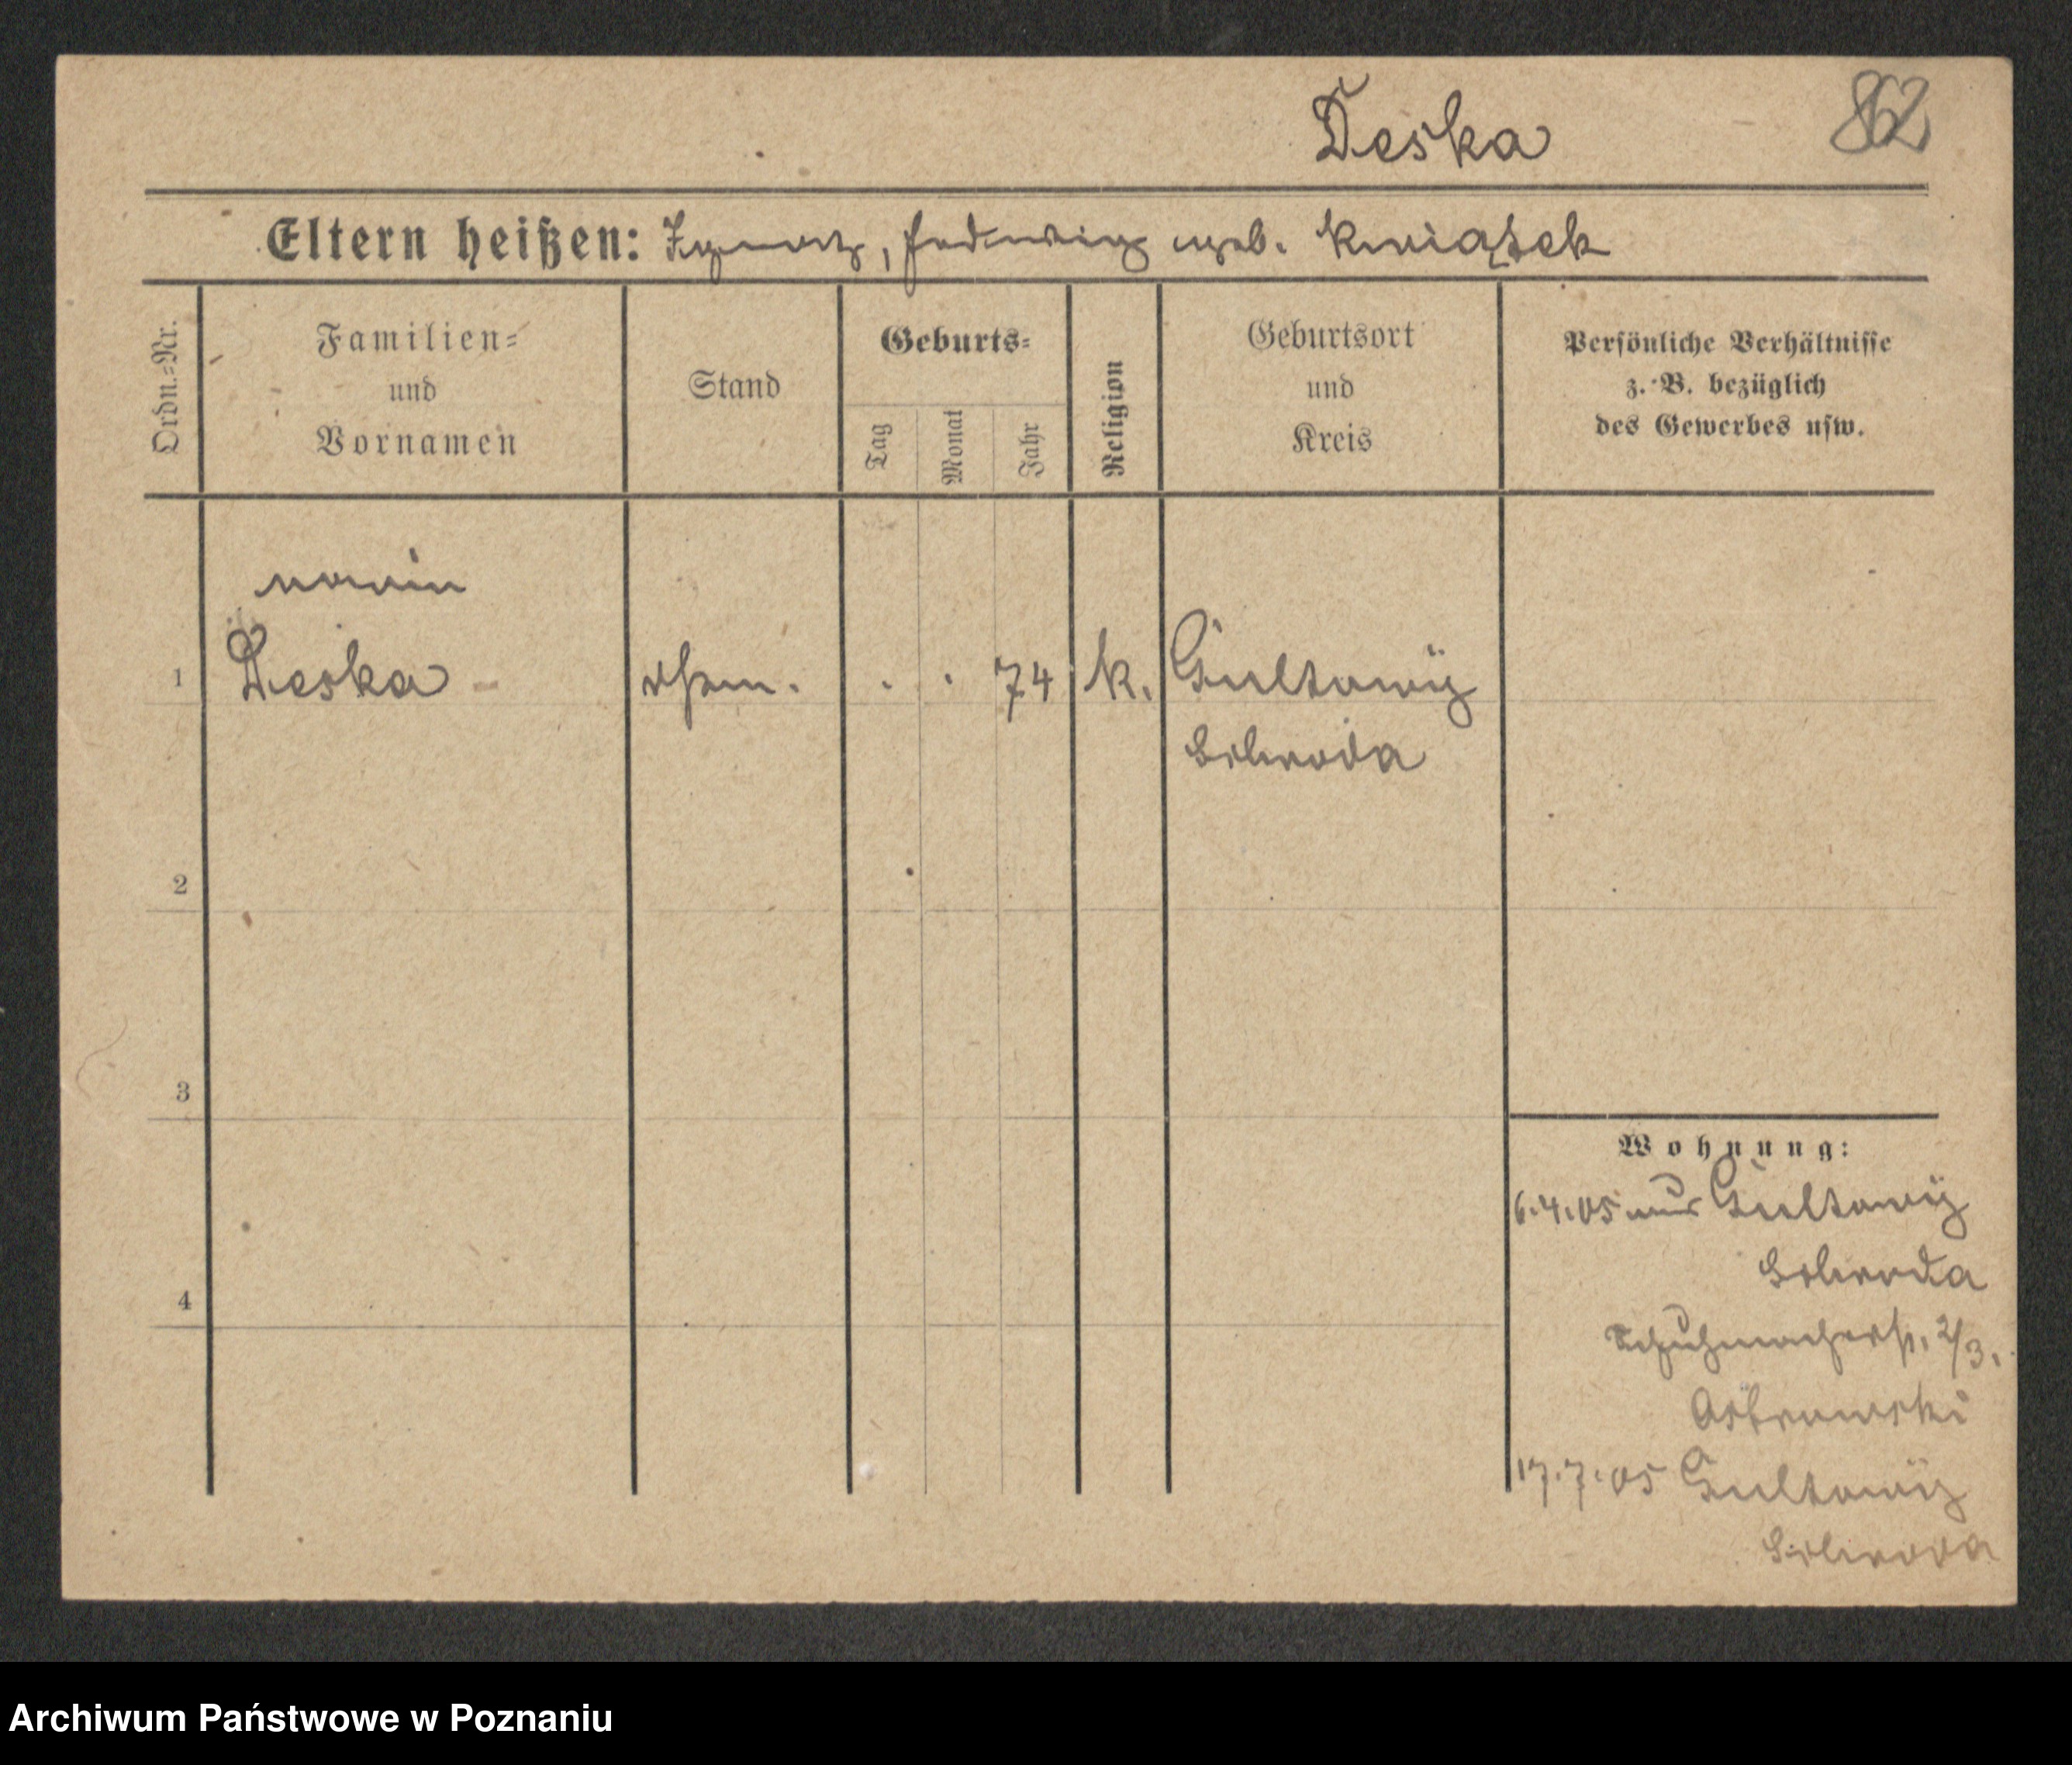 Deska 862
Eltern heißen: Ignatz, Hedwig geb. Kwiątek
Ordn.-Nr.
Familien-
und
Vornamen
Stand
Geburts-
Tag
Monat
Jahr
Religion
Geburtsort
und
Kreis
Persönliche Verhältnisse
z. B. bezüglich
des Gewerbes usw.
Maria
1 Deska . . 74 k. Gultowy
Schroda
2
3
4
Wohnung:
6.4.05 aus Gultowy
Schroda
Schuhmacherstr. 2/3.
Ostrowski
17.7.05 Gultowy
Schroda
Archiwum Państwowe w Poznaniu